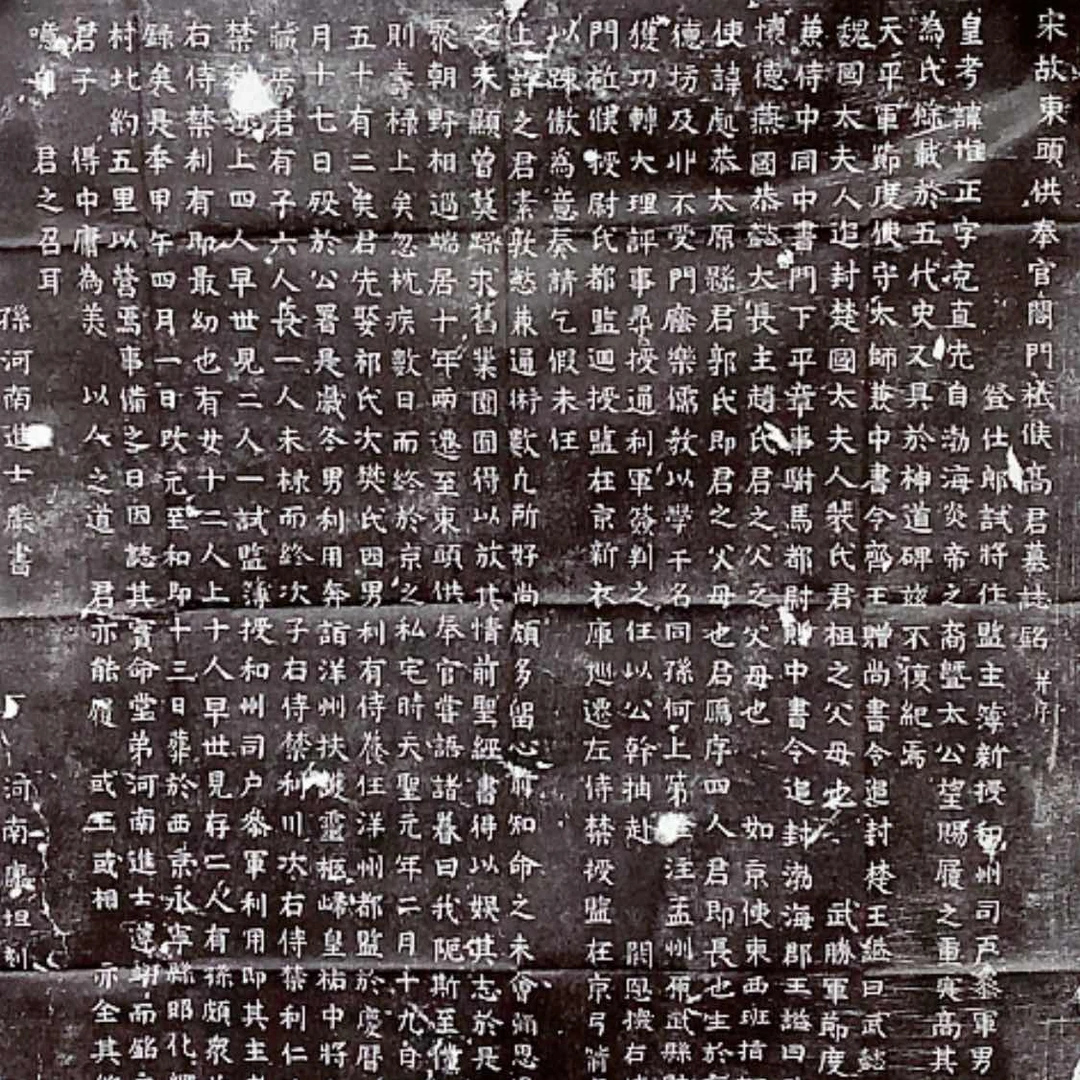 宋故東頭供奉官閤門祗候高君墓誌銘 并序
登仕郎試將作監主簿新授和州司戶叅軍男
皇考諱惟正字克直先自渤海炎帝之裔暨太公望賜履之重寔高其
為氏餘載於五代史又具於神道碑茲不復紀焉
天平軍節度使守太師兼中書令齊王贈尚書令追封楚王謚曰武懿
魏國太夫人追封楚國太夫人裴氏君祖之父母也 武勝軍節度
兼侍中同中書門下平章事駙馬都尉贈中書令追封渤海郡王謚曰
懷德燕國恭懿大長主趙氏君之父之父母也 如京使東西班指
使諱處恭太原縣君郭氏即君之父母也君鴈序四人君即長也生於
德坊及丱不受門廕樂儒敎以學干名同孫何上第 注孟州 武縣
獲功轉大理評事尋授通利軍簽判之任以公幹抽赴 闕恩換右
門祗候授尉氏都監迴授監在京新衣庫廵遷左侍禁授監在京弓箭
以踈傲為意奏請乞假未任
上許之君素敦慤兼通術數凢所好尚頗多留心前知命之未會 思
之未顯曾莫躁求舊業園囿得以放其情前聖經書得以娛其志於是
聚朝野相過端居十年兩遷至東頭供奉官嘗語諸暮曰我阨斯至
則壽祿上矣忽枕疾數日而終於京之私宅時天聖元年二月十九日
五十有二矣君先娶祁氏次樊氏因男利有侍養任洋州都監於慶曆
月十七日歿於公署是歲冬男利用奔詣洋州扶護靈柩歸皇祐中將
藏焉君有子六人長一人未祿而終次子右侍禁利川次右侍禁利仁
禁 上四人早世見二人一試監簿授和州司户叅軍利用即其主
右侍禁利有即最幼也有女十二人上十人早世見存二人有孫頗衆
錄矣是季甲午四月一日改元至和即十三日葬於西京永寧縣昭化
村北約五里以營焉事備之日因誌其實命堂弟河南進士 而銘
君子 得中庸為美 以人之道 君亦能履 或王或相 亦全其
噫 君之召耳
孫河南進士 書 河南 坦刻